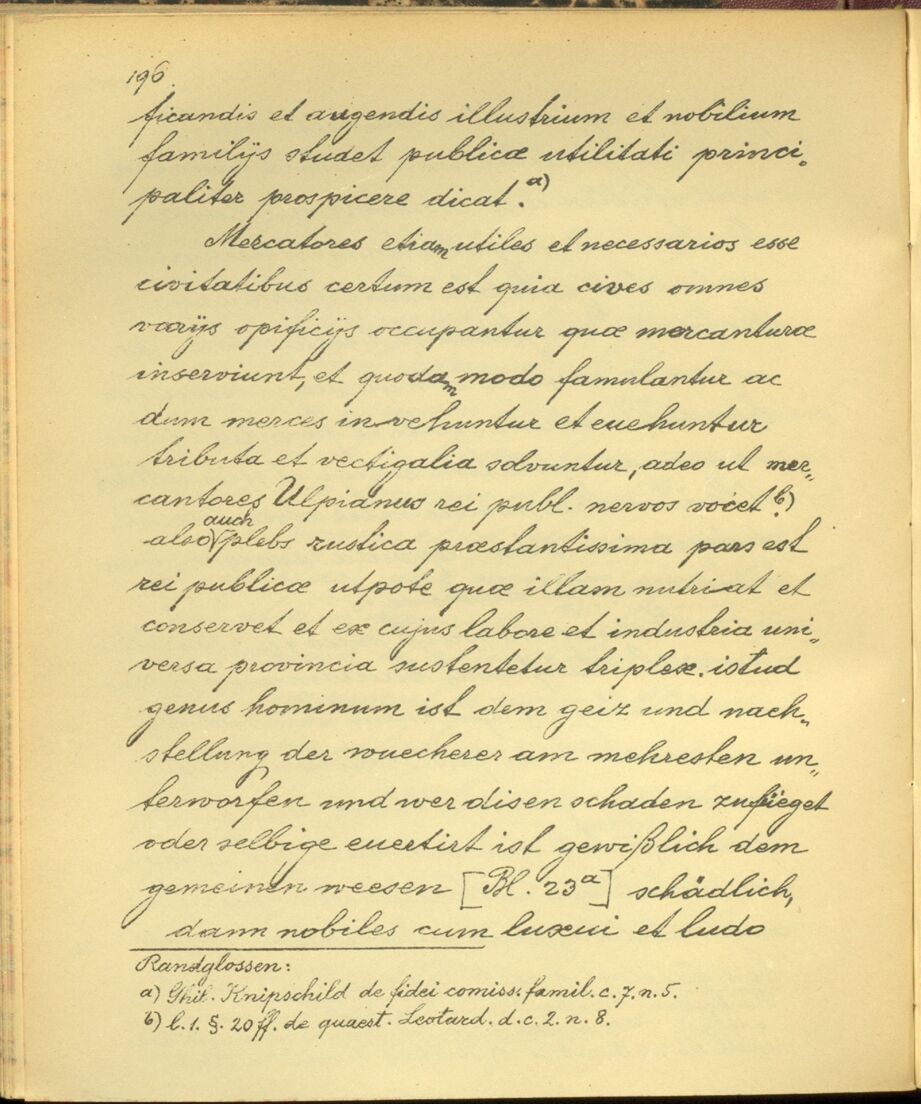 196.
ficandis et augendis illustrium et nobilium
familijs studet publicæ utilitati princi„
paliter prospicere dicat. a)
Mercatores etiam utiles et necessarios esse
civitatibus certum est quia cives omnes
varijs opificijs occupantur quæ mercanturæ
inserviunt, et quodam modo famulantur ac
dum merces in vehuntur et euehuntur
tributa et vectigalia solvuntur, adeo ut mer„
cantores Ulpianus rei publ. nervos vocet. b)
also auch plebs rustica præstantissima pars est
rei publicæ utpote quæ illam nutriat et
conservet et ex cujus labore et industria uni„
versa provincia sustentetur triplex. istud
genus hominum ist dem geiz und nach„
stellung der wuecherer am mehresten un„
terworfen und wer disen schaden zufieget
oder selbige euertirt ist gewißlich dem
gemeinen weesen [Bl. 23a] schädlich,
dann nobiles cum luxui et ludo
Randglossen:
a) Phil. Knipschild de fidei comiss. famil. c. 7. n. 5.
b) l. 1. §. 20 ff. de quaest. Leotard. d. c. 2. n. 8.